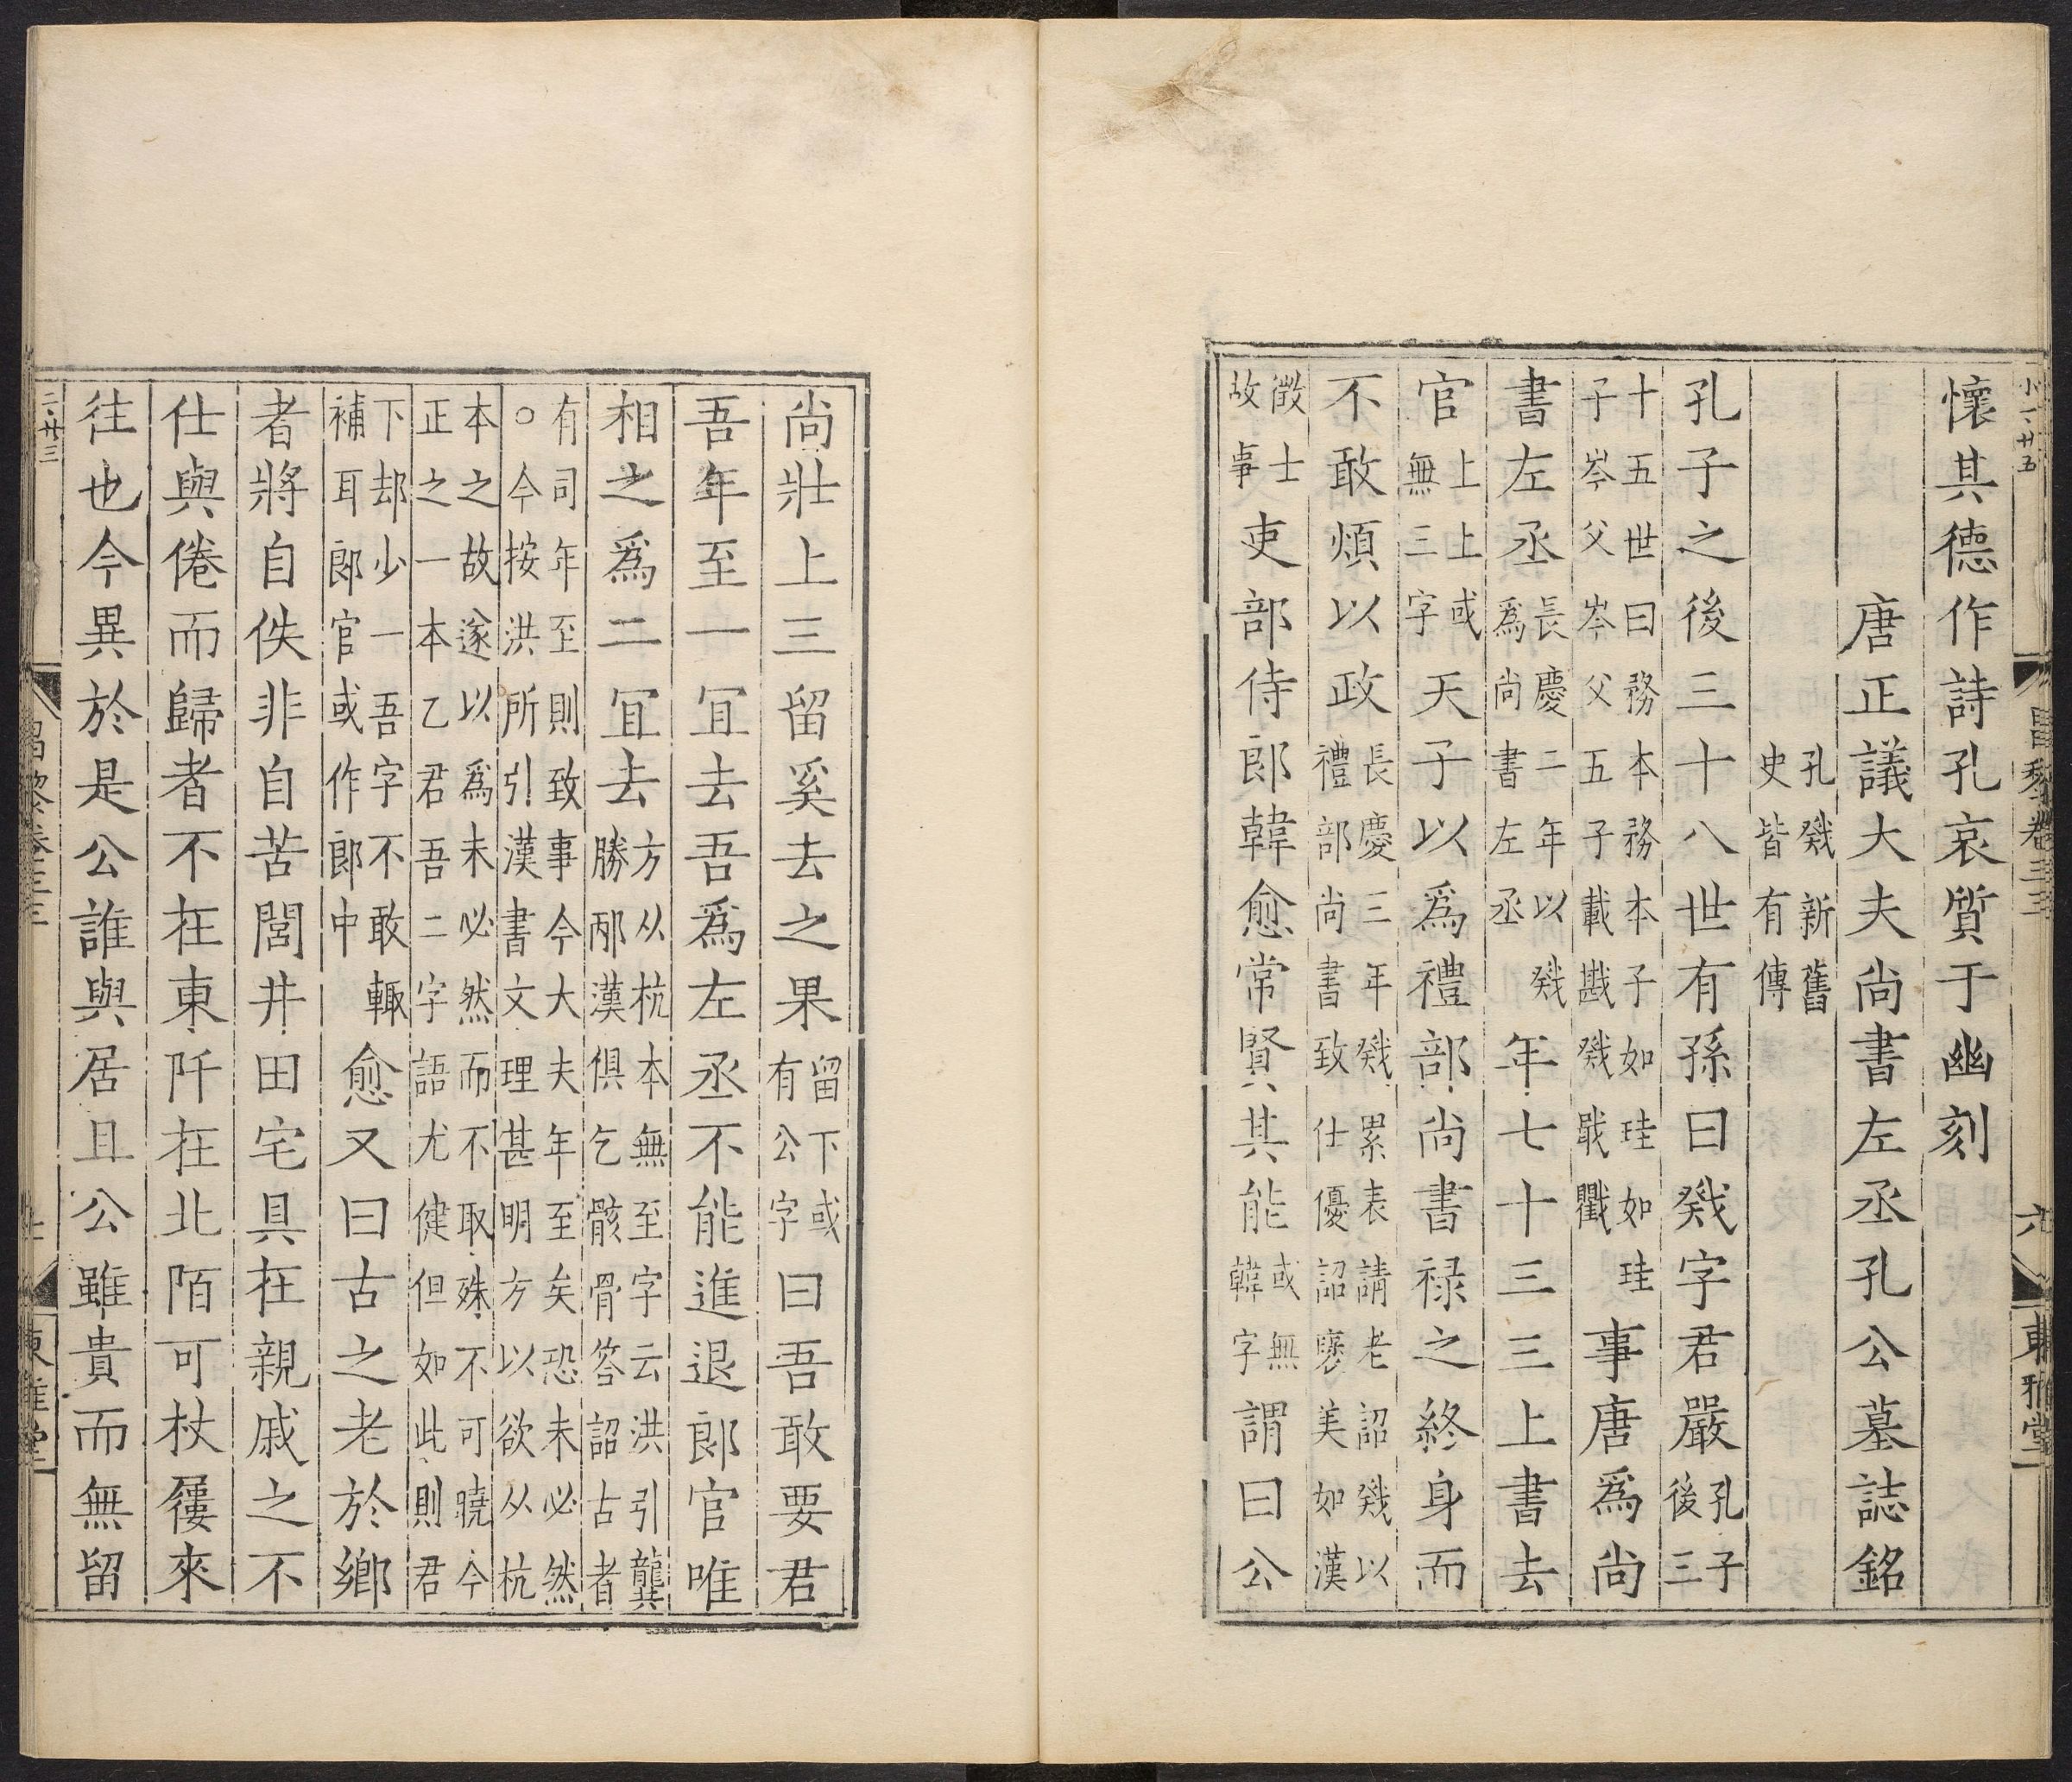 小一廿五
昌黎卷三十三
九
東雅堂
懷其德作詩孔哀質于幽刻
唐正議大夫尚書左丞孔公墓誌銘
孔戣新舊
史皆有傳
孔子之後三十八世有孫曰戣字君嚴孔子後三
十五世曰務本務本子如珪如珪
子岑父岑父五子載戡戣戢戵
事唐爲尚
書左丞長慶二年以戣爲尚書左丞年七十三三上書去
官上上或無三字天子以爲禮部尚書祿之終身而
不敢煩以政長慶三年戣累表請老詔戣以
禮部尚書致仕優詔褒美如漢
徵士故事吏部侍郎韓愈常賢其能或無韓字謂曰公
尚壯上三留奚去之果留下或有公字曰吾敢要君
吾年至一宜去吾爲左丞不能進退郎官唯
相之爲二宜去方从杭本無至字云洪引龔
勝邴漢俱乞骸骨答詔古者
有司年至則致事今大夫年至矣恐未必然
○今按洪所引漢書文理甚明方以欲从杭
本之故遂以爲未必然而不取殊不可曉今
正之一本乙君吾二字語尤健但如此則君
下却少一吾字不敢輒
補耳郎官或作郎中
愈又曰古之老於鄉
者將自佚非自苦閭井田宅具在親戚之不
仕與倦而歸者不在東阡在北陌可杖屨來
往也今異於是公誰與居且公雖貴而無留
二廿三
昌黎卷三十三
東雅堂